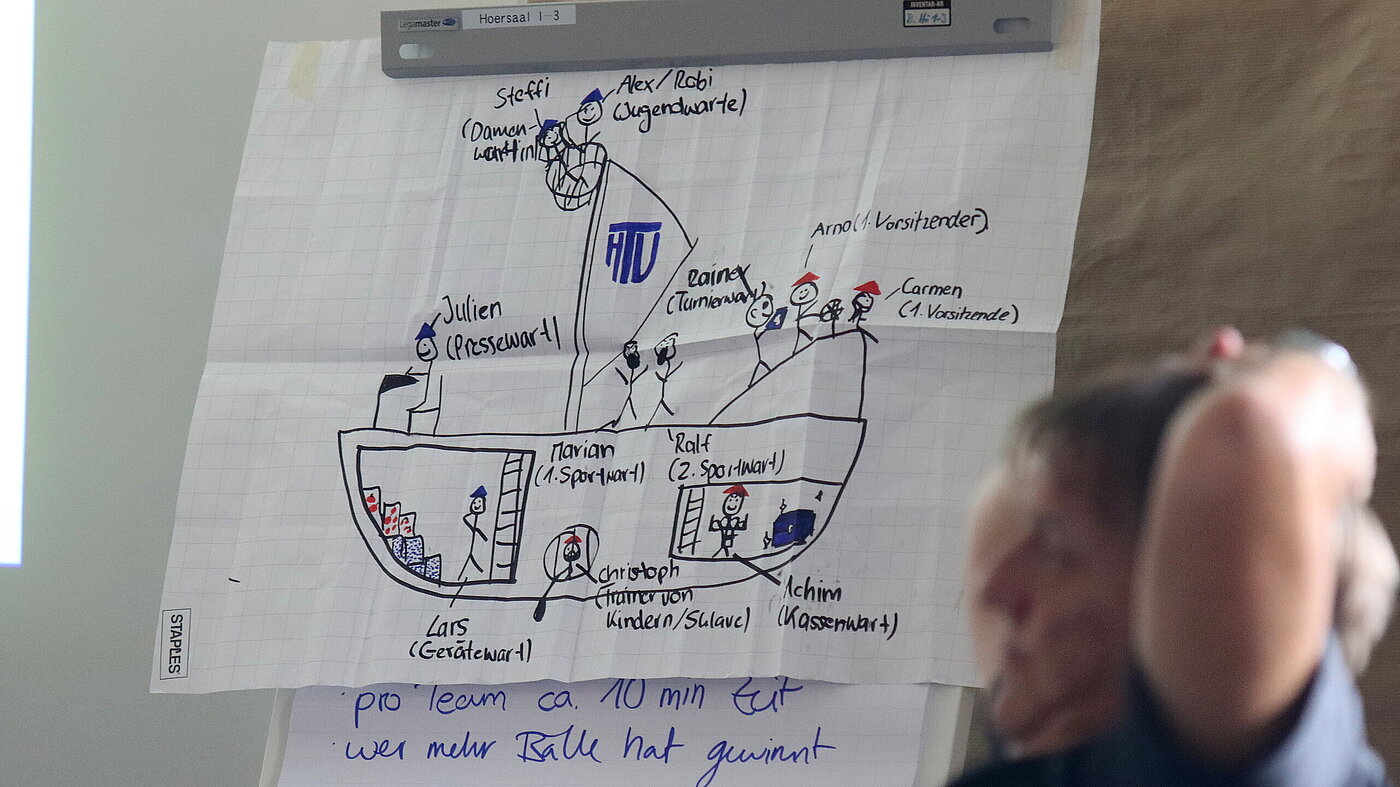 Legamaster
Hoersaal 1-3
INVENTAR-NR
Steffi
(Damen-
wartin)
Alex/Robi
(Jugendwarte)
HTV
Arno (1. Vorsitzender)
Rainer
(Turnierwart)
Carmen
(1. Vorsitzende)
Julien
(Pressewart)
Marian
(1. Sportwart)
Ralf
(2. Sportwart)
Christoph
(Trainer von
Kindern/Sklave)
Achim
(Kassenwart)
Lars
(Gerätewart)
STAPLES
pro Team ca. 10 min Zeit
wer mehr Bälle hat gewinnt